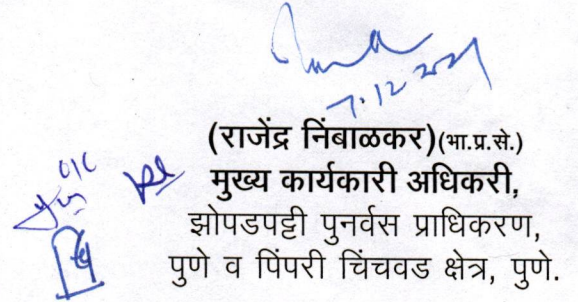 7.12.2021
(राजेंद्र निंबाळकर)(भा.प्र.से.)
मुख्य कार्यकारी अधिकरी,
झोपडपट्टी पुनर्वस प्राधिकरण,
पुणे व पिंपरी चिंचवड क्षेत्र, पुणे.
o/c